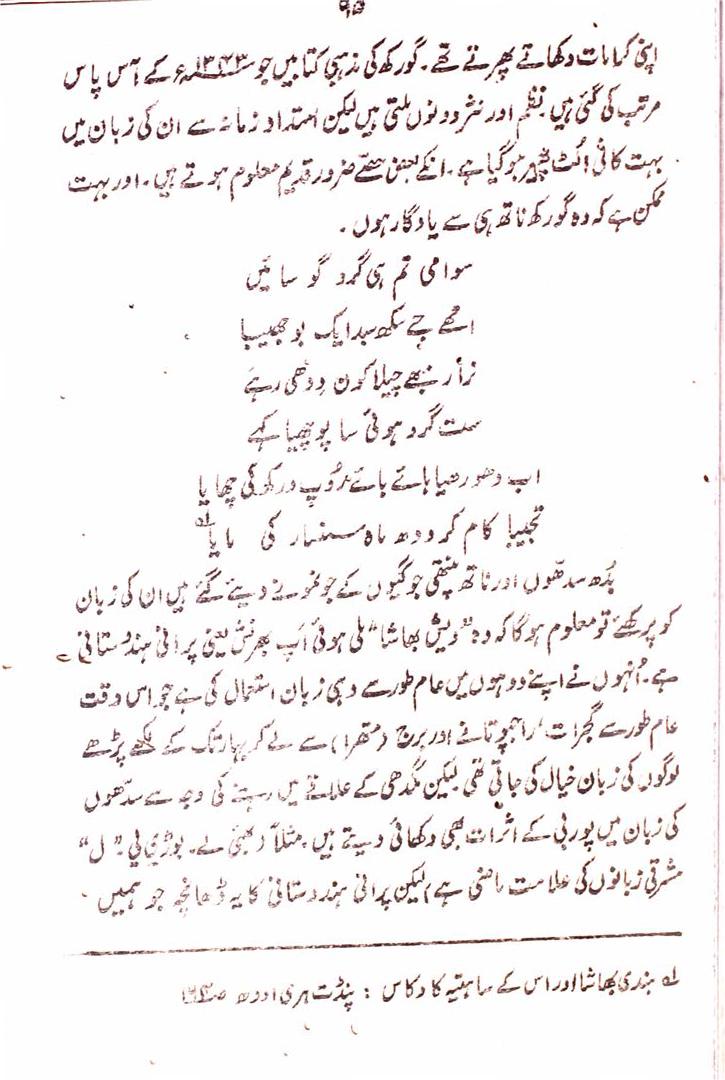 ۹۵
اپنی کرامات دکھاتے پھرتے تھے۔ گورکھ کی مذہبی کتابیں جو ۱۳۴۳ء کے آس پاس
مرتب کی گئی ہیں نظم اور نثر دونوں ملتی ہیں لیکن امتداد زمانہ سے ان کی زبان میں
بہت کافی الٹ پھیر ہوگیا ہے۔ انکے بعض حصّے ضرور قدیم معلوم ہوتے ہیں۔ اور بہت
ممکن ہے کہ وہ گورکھ ناتھ ہی سے یادگار ہوں۔
سوامی تم ہی گرو گوسائیں
امھے جے سکھ سبد ایک بوجھیبا
چیلا کون ودھی رہے
ست گرو ہوئی سا پوچھیا کہے
اب روپ ورکھ کی چھایا
تجیبا کام کرودھ ماہ سنسار کی مایا؎
بُدھ سدھوں اور ناتھ پنتھی جوگیوں کے جو نمونے دیئے گئے ہیں ان کی زبان
کو پرکھئے تو معلوم ہوگا کہ وہ "دیش بھاشا" ملی ہوئی اَپ بھرنش یعنی پرانی ہندوستانی
ہے۔ اُنہوں نے اپنے دوہوں میں عام طور سے وہی زبان استعمال کی ہے جو اس وقت
عام طور سے گجرات، راجپوتانے اور برج (متھرا) سے لے کر بہار تک کے لکھے پڑھے
لوگوں کی زبان خیال کی جاتی تھی لیکن مگدھی کے علاقے میں رہنے کی وجہ سے سدھوں
کی زبان میں پوربی کے اثرات بھی دکھائی دیتے ہیں۔ مثلاً بوڑی لی۔ "ل"
مشرقی زبانوں کی علامت ماضی ہے) لیکن پرانی ہندوستانی کا یہ ڈھانچہ جو ہمیں
لے ہندی بھاشا اور اس کے ساہتیہ کا وکاس : پنڈت ہری اودھ